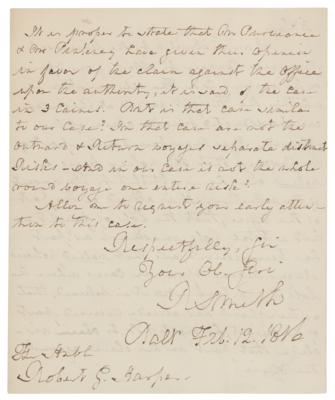 It is proper to state that Mr Purviance
& Mr Pinkney have given their opinion
in favor of the claim against the Office
upon the authority, it is said, of the case
in 3 Caines. But is that case similar
to our case? In that case are not the
outward & Return voyages separate distinct
Risks - And in our case is not the whole
round voyage one entire risk?
Allow me to request your early atten-
tion to this case.
Respectfully, Sir
Your Ob. Servt
R Smith
Balt Feb. 12. 1816
The Honble
Robert G. Harper